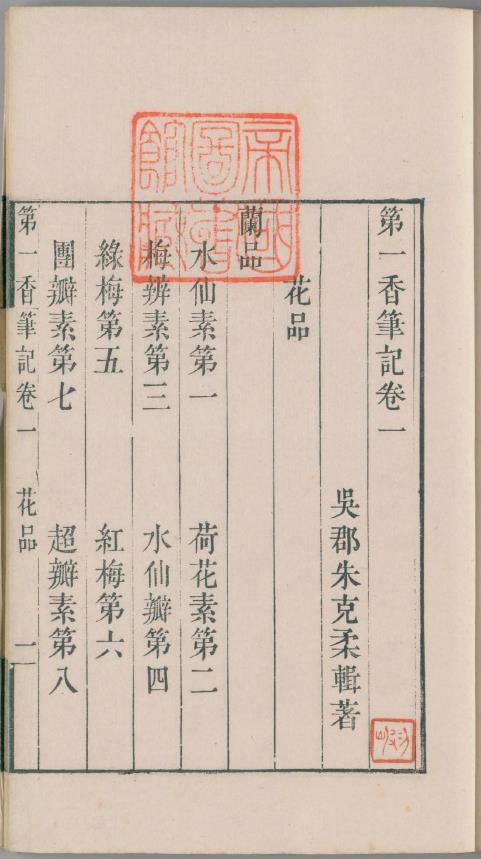 第一香筆記卷一
吳郡朱克柔輯著
花品
蘭品
水仙素第一 荷花素第二
梅瓣素第三 水仙瓣第四
綠梅第五 紅梅第六
團瓣素第七 超瓣素第八
第一香筆記卷一 花品 一
帝國圖書館藏